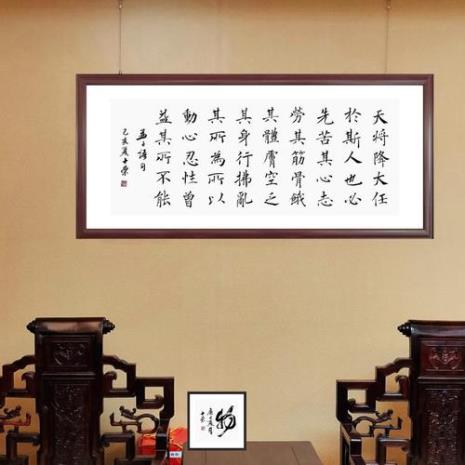 天将降大任
於斯人也必
先苦其心志
勞其筋骨餓
其體膚空乏
其身行拂亂
其所為所以
動心忍性曾
益其所不能
孟子語句
己亥夏